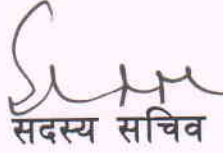 सदस्य सचिव